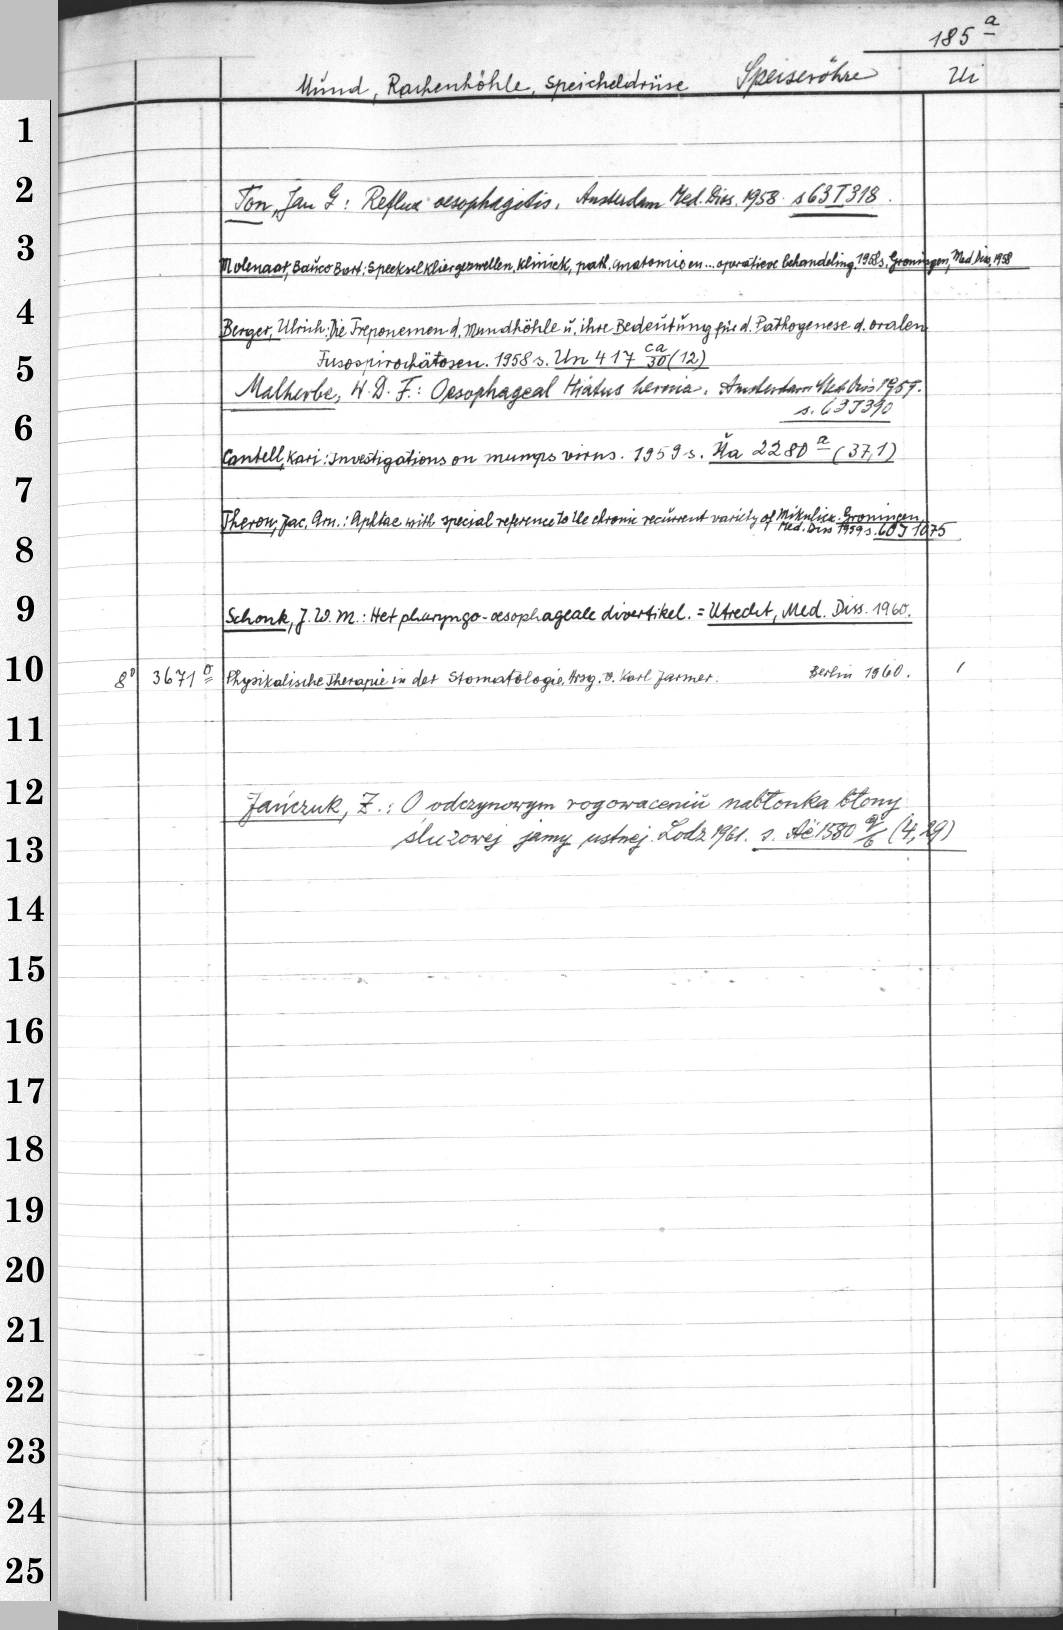 185 a
Mund, Rachenhöhle, Speicheldrüse Speiseröhre Ui
1
2
Ton, Jan G: Reflux oesophagitis. Amsterdam Med. Diss. 1958. s 63 T 318.
3
Molenaar, Bauco Bart: Speekselkliergezwellen, Kliniek, path. anatomie en ... operatieve behandeling. 1958 s. Groningen, Med. Diss. 1958
4
Berger, Ulrich: Die Treponemen d. Mundhöhle u. ihre Bedeutung für d. Pathogenese d. oralen
5
Fusospirochätosen. 1958 s. Un 417 ca/30 (12)
Malherbe, W. D. F.: Oesophageal Hiatus hernia. Amsterdam Med Diss 1957.
s. 63 J 390
6
Cantell, Kari: Investigations on mumps virus. 1959 s. Ua 2280 a (37,1)
7
Theron, Jac. Arn.: Aphtae with special reference to the chronic recurrent variety of Mikulicz. Groningen,
Med. Diss 1959 s. 60 J 1075
8
9
Schonk, J. W. M.: Het pharyngo-oesophageale divertikel. = Utrecht, Med. Diss. 1960.
10
8° 3671 o Physikalische Therapie in der Stomatologie. Hrsg. v. Karl Jarmer. Berlin 1960. 1
11
12
Jańczuk, Z.: O odczynowym rogowaceniu nabłonka błony
śluzowej jamy ustnej. Lodz 1961. s. Ac 1580 (4,29)
13
14
15
16
17
18
19
20
21
22
23
24
25